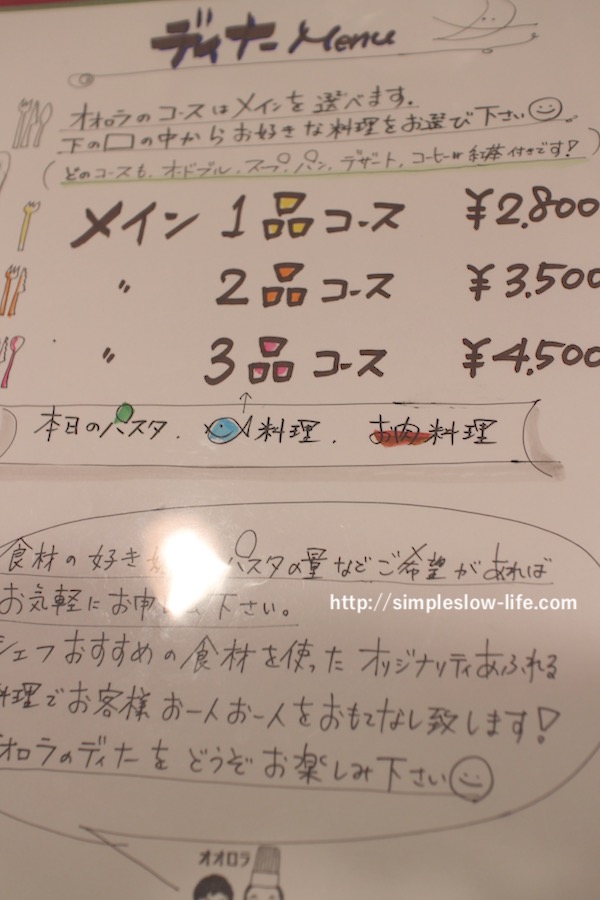 ディナー Menu
オオロラのコースはメインを選べます。
下の□の中からお好きな料理をお選び下さい
(どのコースも、オードブル、スープ、パン、デザート、コーヒーor紅茶付きです!)
メイン 1品コース ¥2,800
〃 2品コース ¥3,500
〃 3品コース ¥4,500
本日のパスタ . 料理 . お肉料理
食材の好き パスタの量などご希望があれば
お気軽にお申 下さい。
http://simpleslow-life.com
シェフおすすめの食材を使ったオリジナリティあふれる
料理でお客様お一人お一人をおもてなし致します!
オオロラのディナーをどうぞお楽しみ下さい
オオロラ